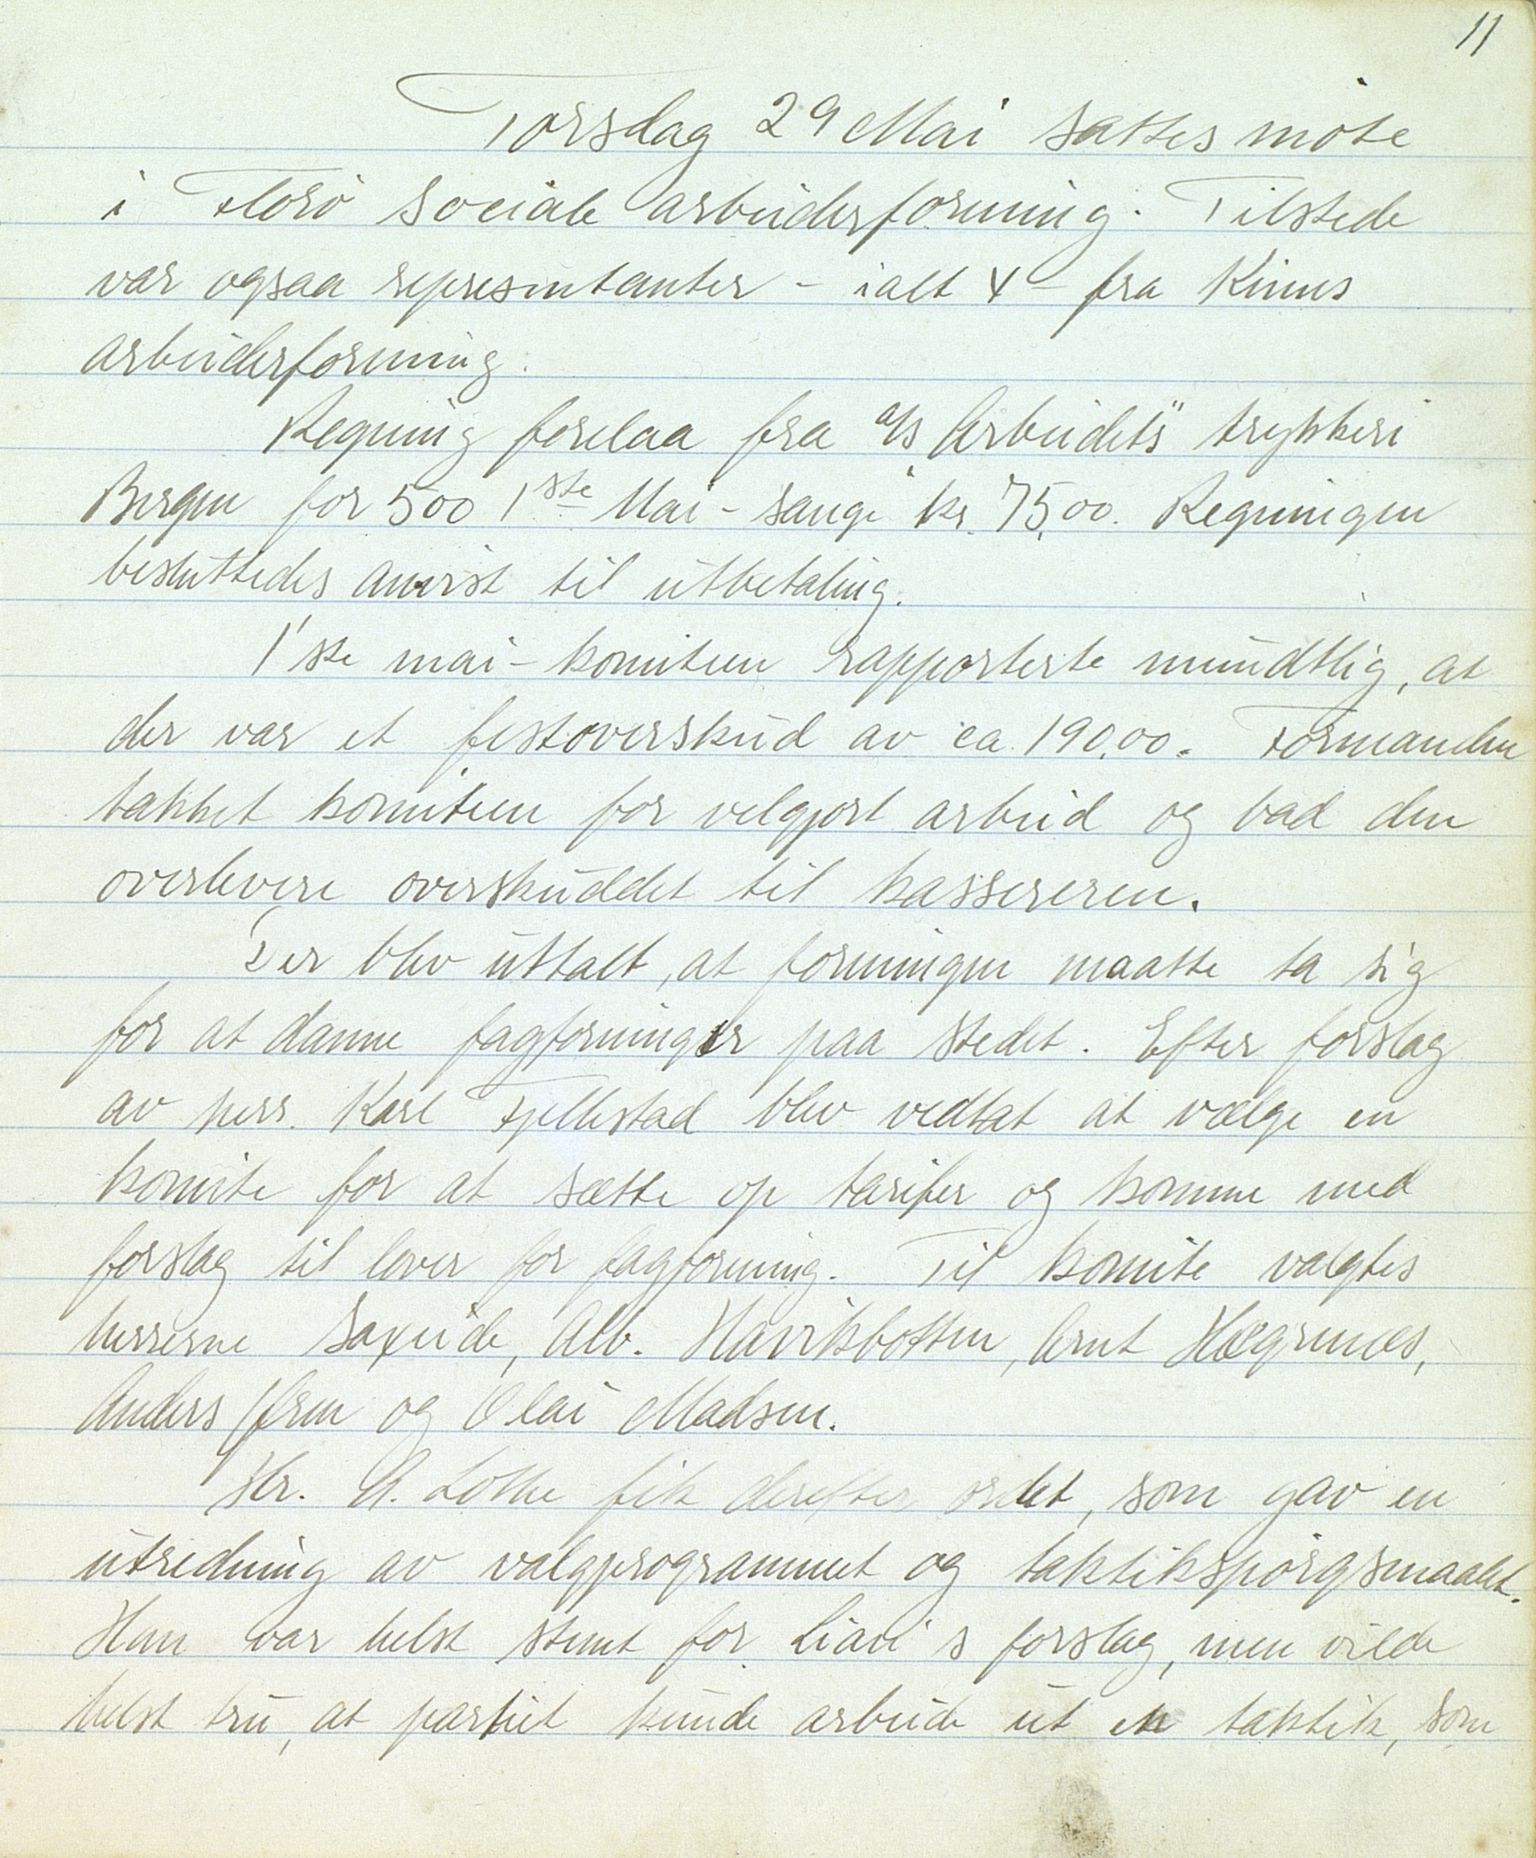 11
Torsdag 29 Mai sattes møte
i Florø sociale arbeiderforening. Tilstede
var ogsaa representanter - ialt 4 - fra Kinns
arbeiderforening.
Regning forelaa fra a/s Arbeidets" trykkeri
Bergen for 500 1ste Mai - sange kr. 75,00. Regningen
besluttedes anvist til utbetaling.
1'ste mai - komiteen rapporterte mundtlig, at
der var et festoverskud av ca. 190,00. Formanden
takket komiteen for velgjort arbeid og bad den
overlevere overskuddet til kassereren.
Der blev uttalt, at foreningen maatte ta sig
for at danne fagforeninger paa stedet. Efter forslag
av herr. Karl Fjellestad blev vedtat at vælge en
komite for at sætte op tarifer og komme med
forslag til lover for fagforening. Til komite valgtes
herrerne Saxeide, Alb. Havikbotten, Arnt Hægrenæs,
Anders Øren og Olai Madsen.
Hr. A. Lothe fik derefter ordet, som gav en
utredning av valgprogrammet og taktikspørgsmaalet.
Han var helst stemt for Lian's forslag, men vilde
helst tru, at partiet kunde arbeide ut en taktik, som